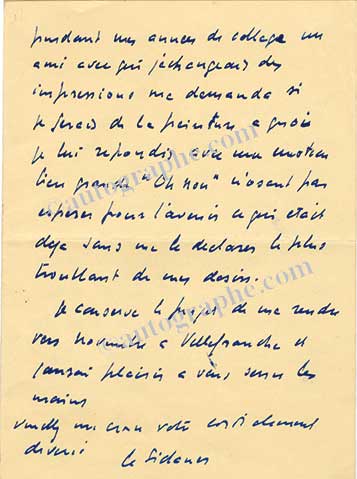 pendant mes annees de college un
ami avec qui j'échangeais des
impressions me demanda si
je ferais de la peinture a quoi
je lui repondis avec une emotion
bien grande "Oh non" n'osant pas
esperer pour l'avenir ce qui était
deja sans me le declarer le plus
troublant de mes desirs.
Je conserve le projet de me rendre
vers novembre a Villefranche et
j'aurai plaisir a vous serrer les
mains
veuillez me croire votre cordialement
devoué
Le Sidaner
©autographe.com
©autographe.com